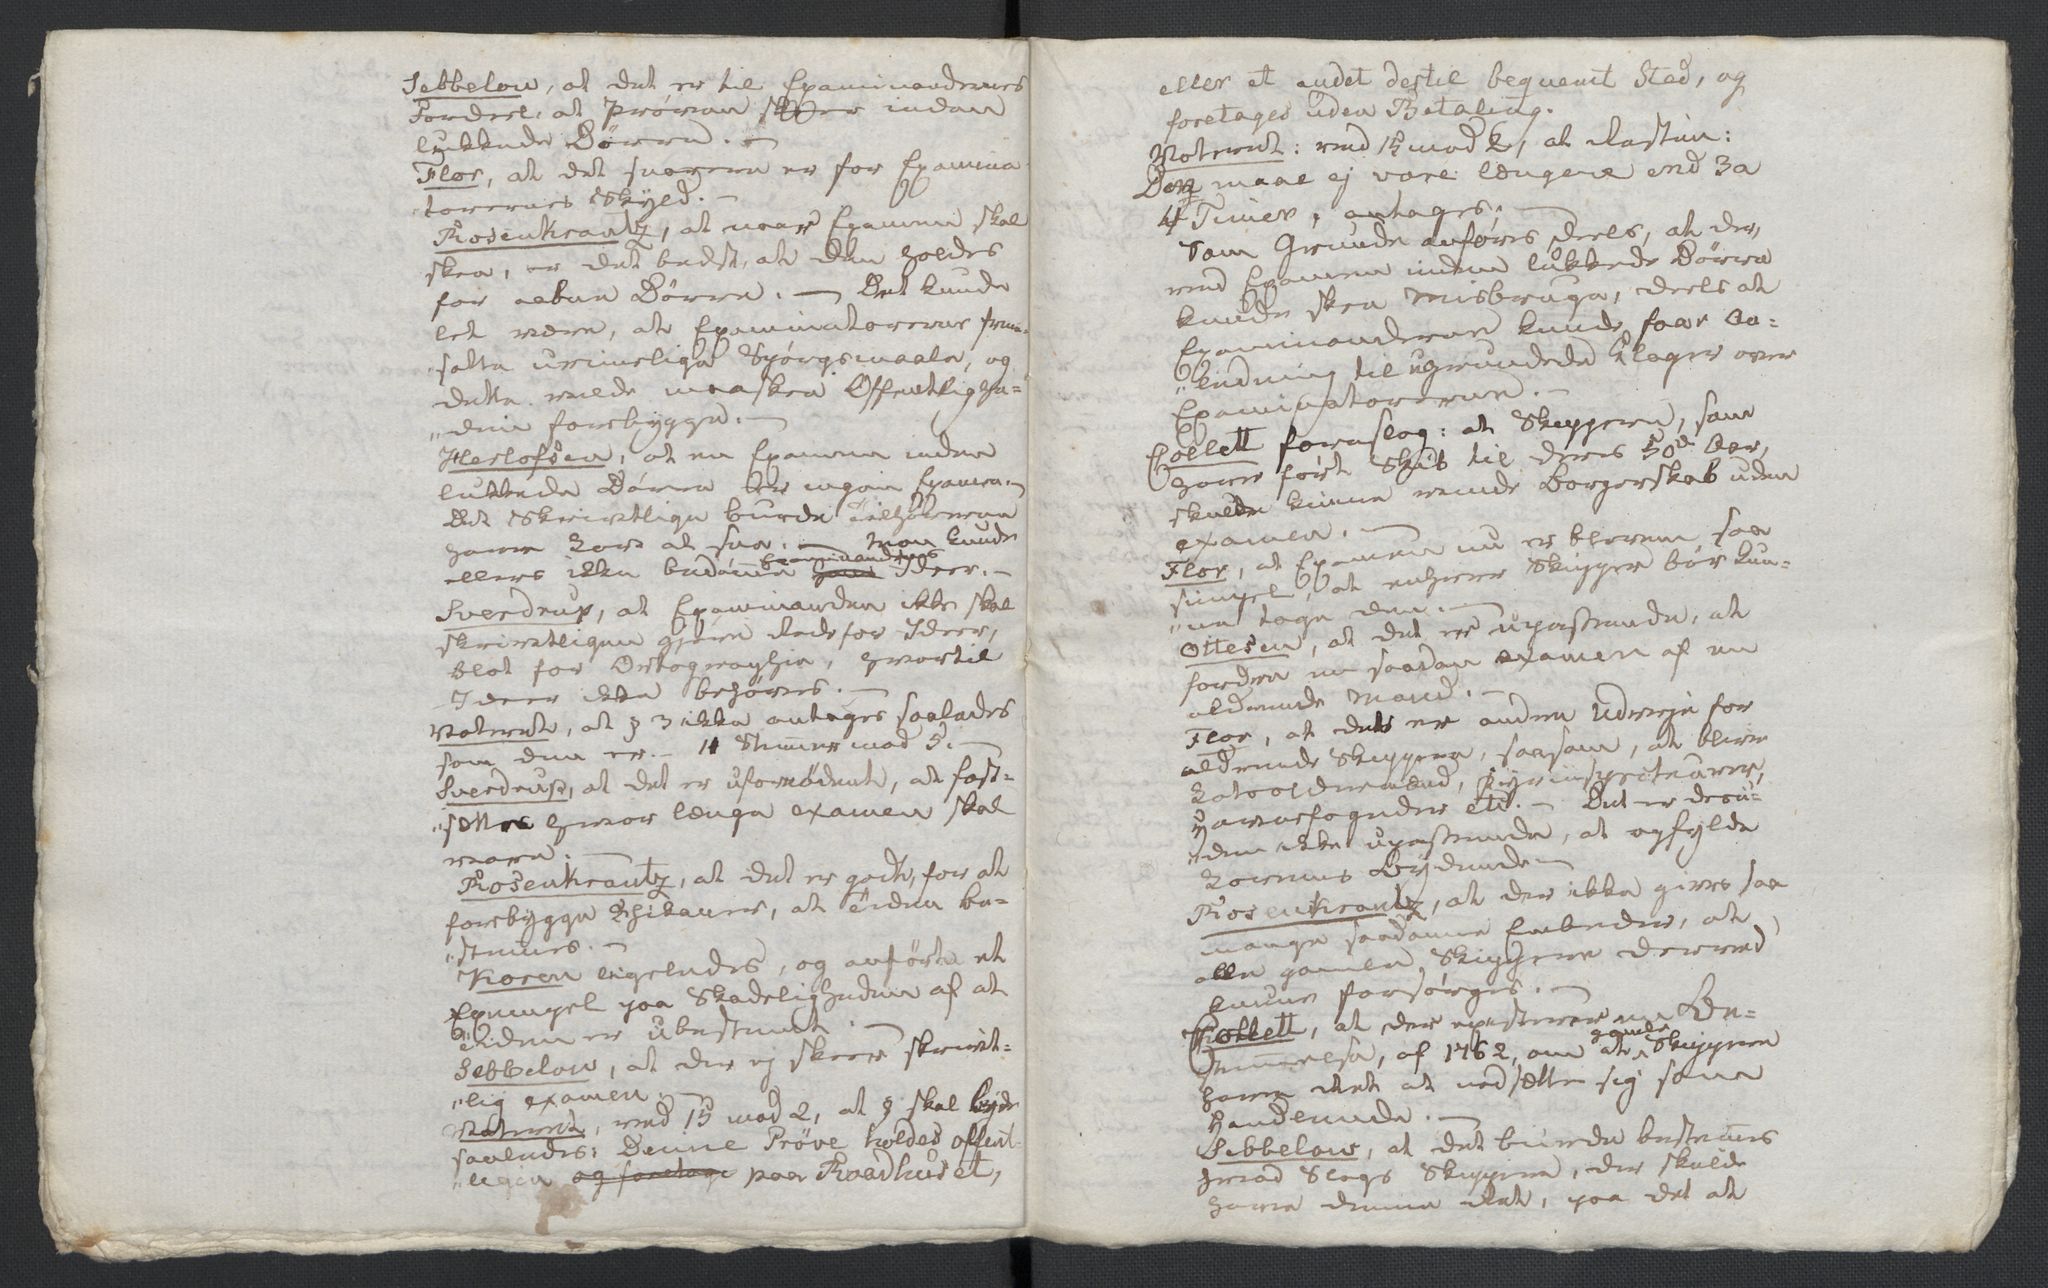 Sebbelow, at det er til Examinandernes
Fordeel, at Prøven skeer inden
lukkede Dörre. —
Flor, at det snarere er for Examina-
torernes Skyld. —
Rosenkrantz, at naar Examen skal
skee, er det bedst, at den holdes
for aabne Dörre. — Det kunde
let være, at Examinatorerne frem-
satte urimelige Spörgsmaale, og
dette vilde maaskee Offentlighe=
„den forebygge. —
Herlofsen, at en Examen inden
lukkede Dörre er ingen Examen. —
Det Skrivtlige burde Tilhörerne
have Lov at see. — Man kunde
ellers ikke bedömme Examinandens Ideer. —
Sverdrup, at Examinanden ikke skal
skrivtligen gjöre Rede for Ideer,
blot for Ortographie, hvortil
Ideer ikke behöves. —
Voteret, at § 3 ikke antages saaledes
som den er. — 11 Stemmer mod 5. —
Sverdrup, at det er ufornödent, at fast=
„sættes hvor længe examen skal
vare. —
Rosenkrantz, at det er godt, for at
forebygge Chikaner, at Tiden be=
„stemmes. —
Koren ligeledes, og anförte et
Exempel paa Skadeligheden af at
Tiden er ubestemt. —
Sebbelow, at der ej skeer skrivt=
„lig examen. —
Voteret, med 15 mod 2, at § skal lyde
saaledes: Denne Pröve holdes offent-
„ligen og foretage paa Raadhuset,
eller et andet dertil beqvemt Sted, og
foretages uden Betaling.
Voteret: med 15 mod 2, at Passus:
Den maae ej vare længere end 3 a
4 Timer, antages. —
Som Grunde anföres deels, at der,
ved Examen inden lukkede Dörre
kunde skee Misbruge, deels at
Examinanderne kunde faae An=
„ledning til ugrundede Klager over
Examinatorerne. —
Collett foreslog: at Skippere, som
have fört Skib til deres 50de Aar,
skulde kunne vinde Borgerskab uden
examen. —
Flor, at Examen nu er bleven saa
simpel, at enhver Skipper bör kun=
„ne tage den. —
Ottesen, at det er upassende, at
fordre en saadan examen af en
aldrende Mand. —
Flor, at der er anden Udveje for
aldrende Skippere, saasom, at blive
Lodsoldermænd, Fyrinspecteurer,
Havnefogder etc. — Det er desu=
„den ikke upassende, at opfylde
Lovens Bydende —
Rosenkrantz, at der ikke gives saa
mange saadanne Embeder, at
alle gamle Skippere derved
kunne forsörges. —
Collett, at der existerer en Be=
stemmelse, af 1762, om at gamle Skippere
have Ret at nedsætte sig som
Handlende. —
Sebbelow, at det burde bestemmes
hvad Slags Skippere, der skulde
have denne Ret, paa det at